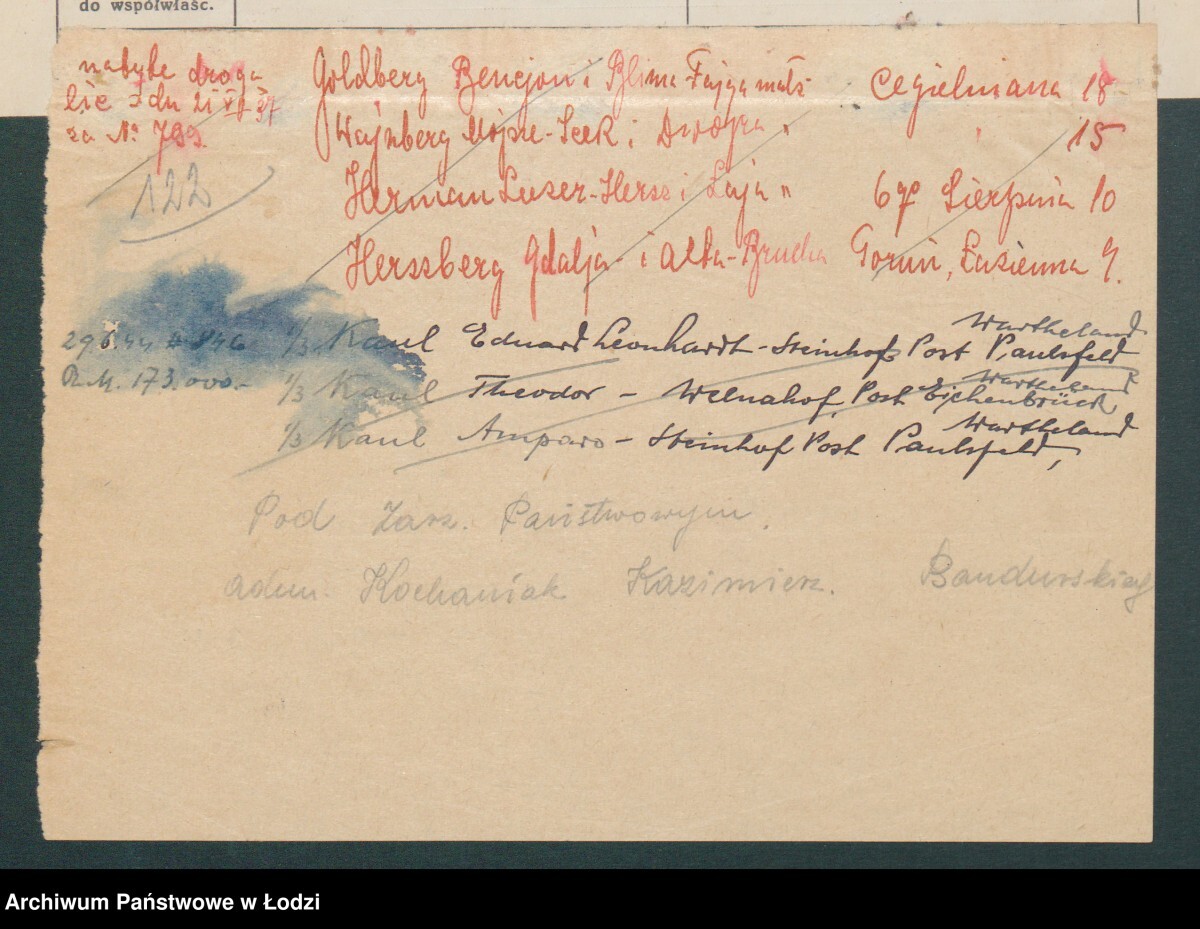 do współwłaśc.
nabyte drogą Goldberg Bencjon i Blima-Fajga małż. Cegielniana 18
lic z dn 21 VII 37 Wajnberg Mojsze-Icek i Dwojra " " 15
za № 799.
122 Herman Luzer-Hersz i Łaja " 6go Sierpnia 10
Herszberg Gdalja i Alta-Brucha Toruń, Łazienna 4.
29 6.44 # 846 1/3 Kaul Eduard Leonhardt - Steinhof Post Paulsfeld Wartheland
R.M. 173.000.- 1/3 Kaul Theodor - Welnahof, Post Eichenbrück Wartheland
1/3 Kaul Amparo - Steinhof Post Paulsfeld, Wartheland
Pod Zarz. Państwowym.
adm. Kochaniak Kazimierz. Bandurskieg
Archiwum Państwowe w Łodzi